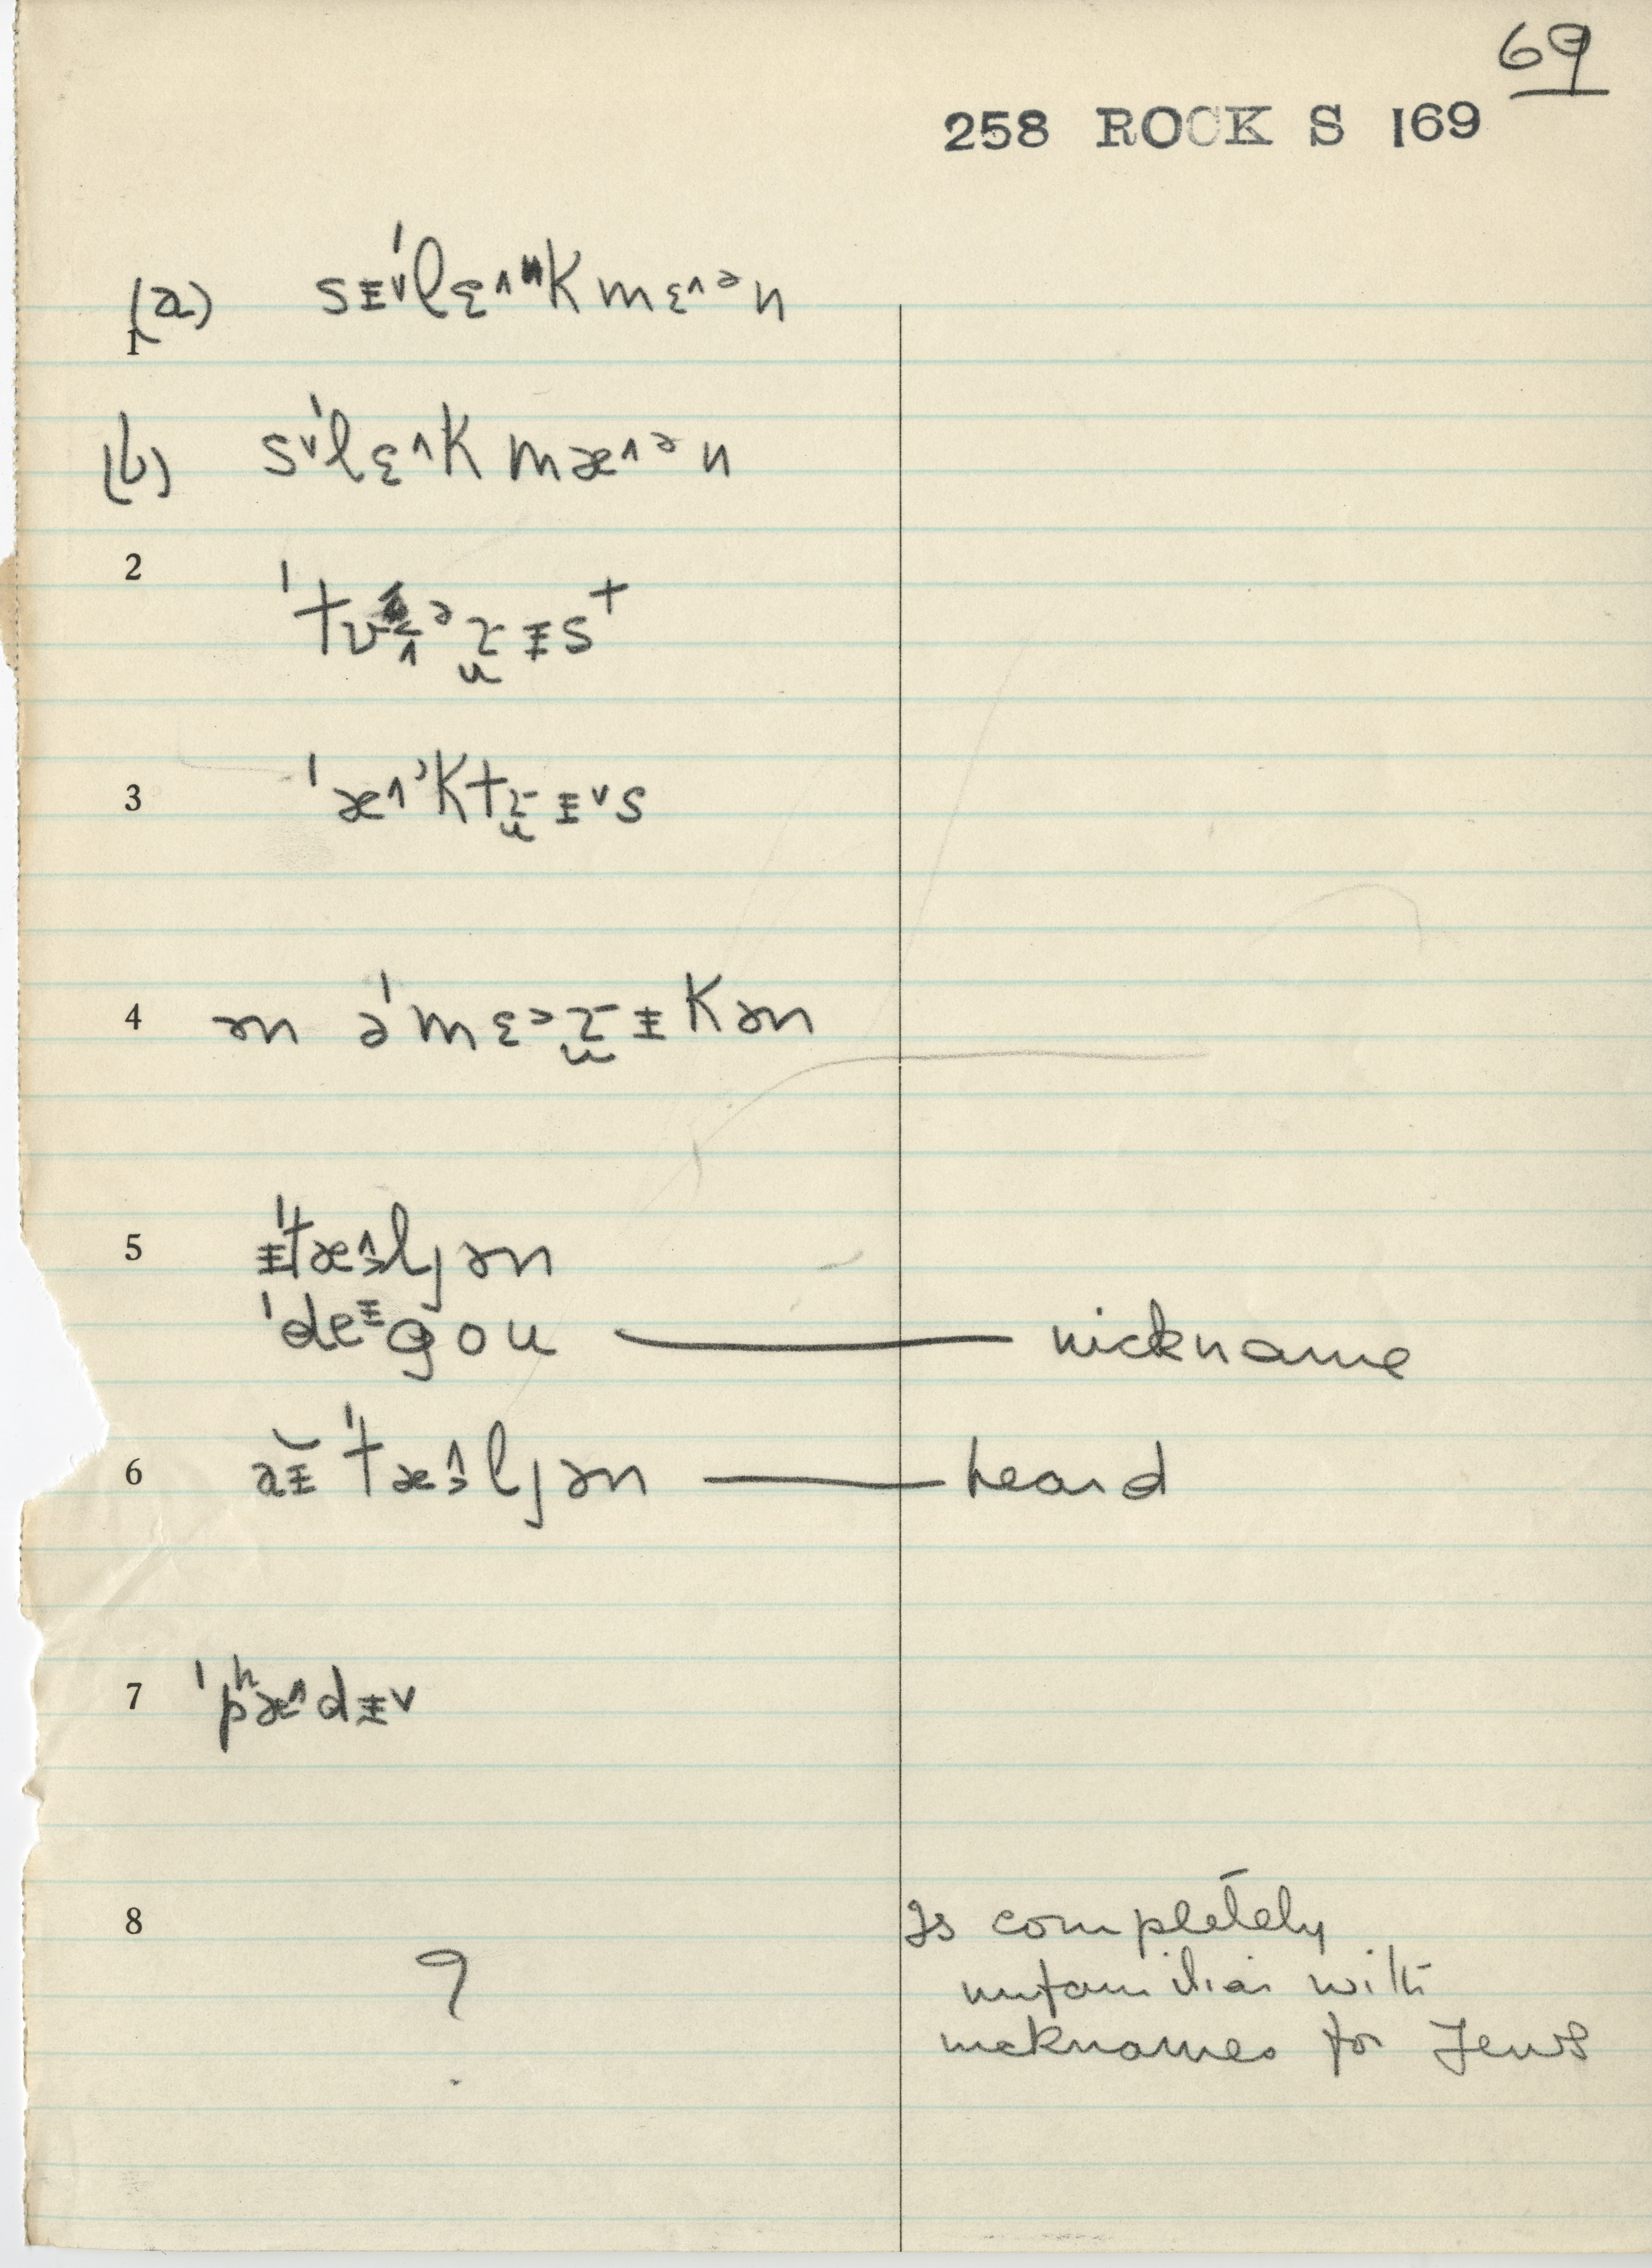 69
258 ROCK S 169
(a) sᵻ˅ˈlɛ˄ᵏkmɛ˄ᵊn
1
(b) s˅ˈlɛ˄k mæ˄ᵊn
2
3
4 ən əˈmɛᵊɹᵻkən
5 ᵻˈtæ˄ljən
ˈdeᵻgou — nickname
6 aᵻˈtæ˄ljən — heard
7 ˈpʰæ˄dᵻ˅
8 ? Is completely
unfamiliar with
nicknames for Jews